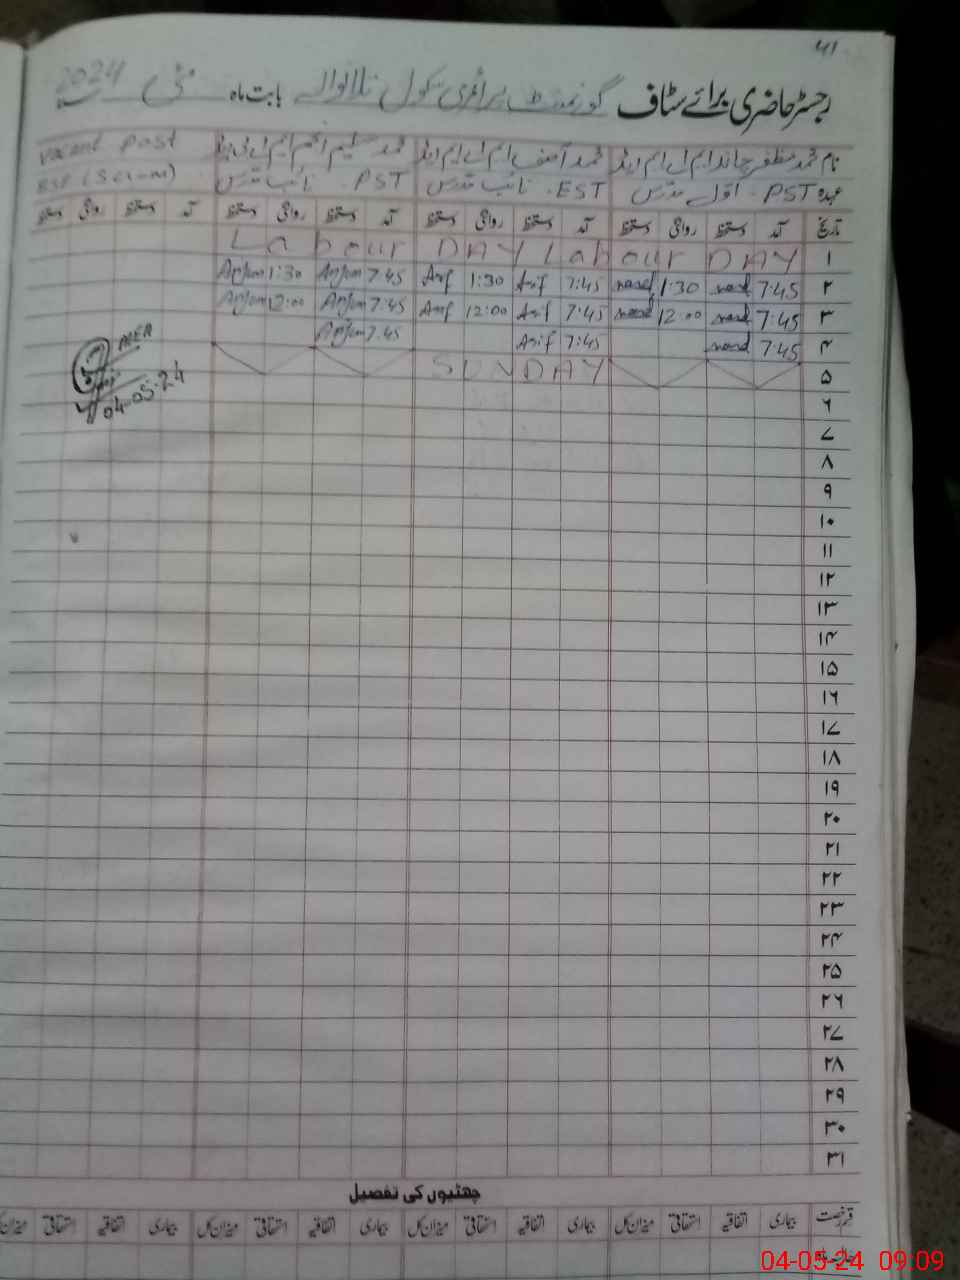 41
رجسٹر حاضری برائے سٹاف گورنمنٹ پرائمری سکول بابت ماہ مئی 2024
نام محمد مظفر چاند ایم اے ایم ایڈ محمد آصف ایم اے ایم ایڈ محمد سلیم انجم ایم اے بی ایڈ Vacent Post
عہدہ PST۔ اوّل مدرس EST۔ نائب مدرس PST۔ نائب مدرس
تاریخ آمد دستخط روانگی دستخط آمد دستخط روانگی دستخط آمد دستخط روانگی دستخط آمد دستخط روانگی دستخط
۱ Labour DAY Labour DAY
۲ 7:45 1:30 7:45 Asif 1:30 Asif 7:45 Anjum 1:30 Anjum
۳ 7:45 12:00 7:45 Asif 12:00 Asif 7:45 Anjum 12:00 Anjum
۴ 7:45 7:45 Asif 7:45 Anjum
AEEA
04-05-24
۵ SUNDAY
۶
۷
۸
۹
۱۰
۱۱
۱۲
۱۳
۱۴
۱۵
۱۶
۱۷
۱۸
۱۹
۲۰
۲۱
۲۲
۲۳
۲۴
۲۵
۲۶
۲۷
۲۸
۲۹
۳۰
۳۱
چھٹیوں کی تفصیل
قسم رخصت بیماری اتفاقیہ استحقاقی میزان کل بیماری اتفاقیہ استحقاقی میزان کل بیماری اتفاقیہ استحقاقی میزان کل بیماری اتفاقیہ استحقاقی میزان کل
04-05-24 09:09